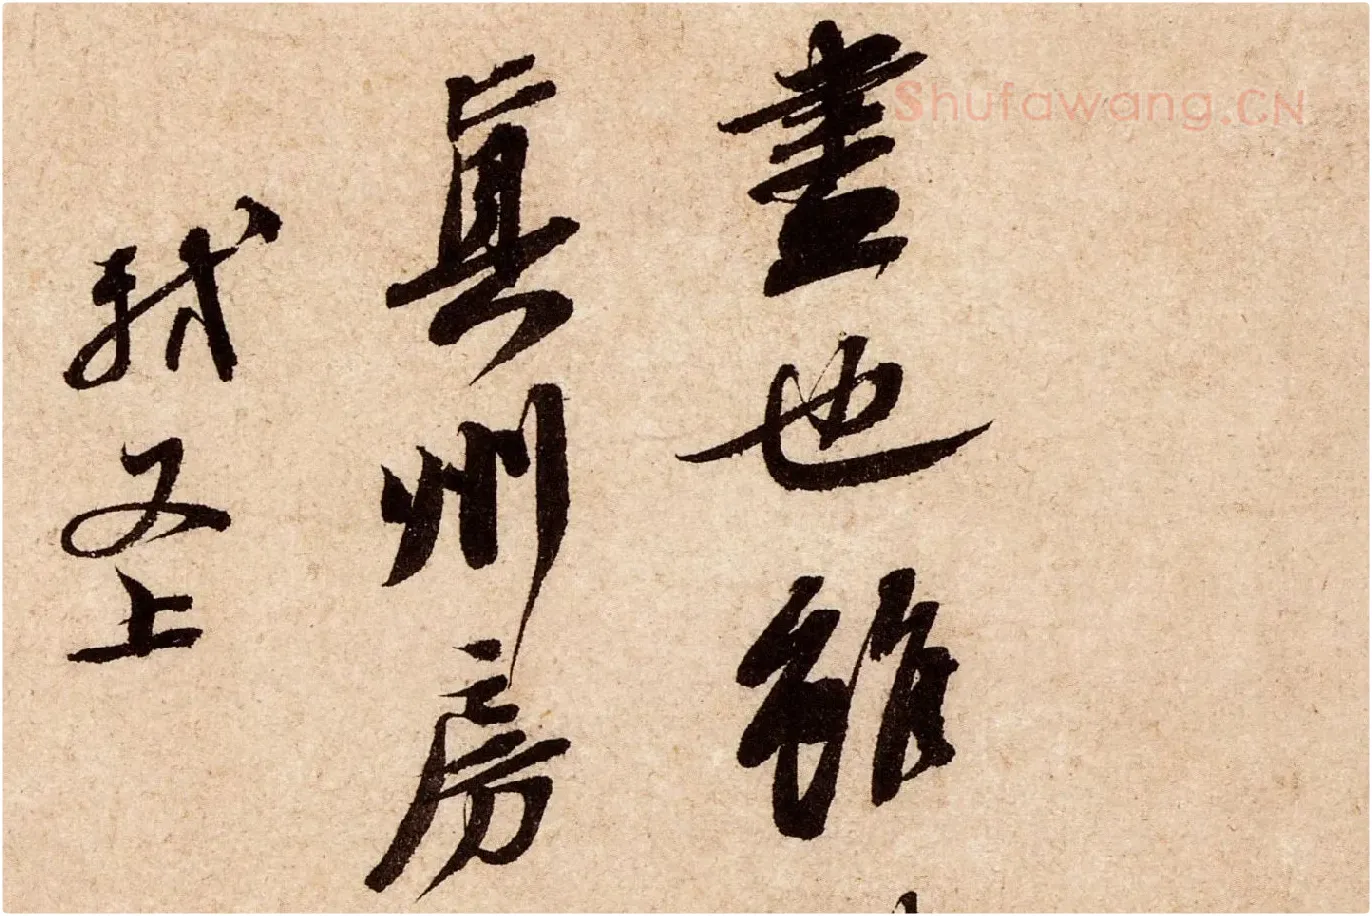 Shufawang.CN
書也雖
真州房
軾又上